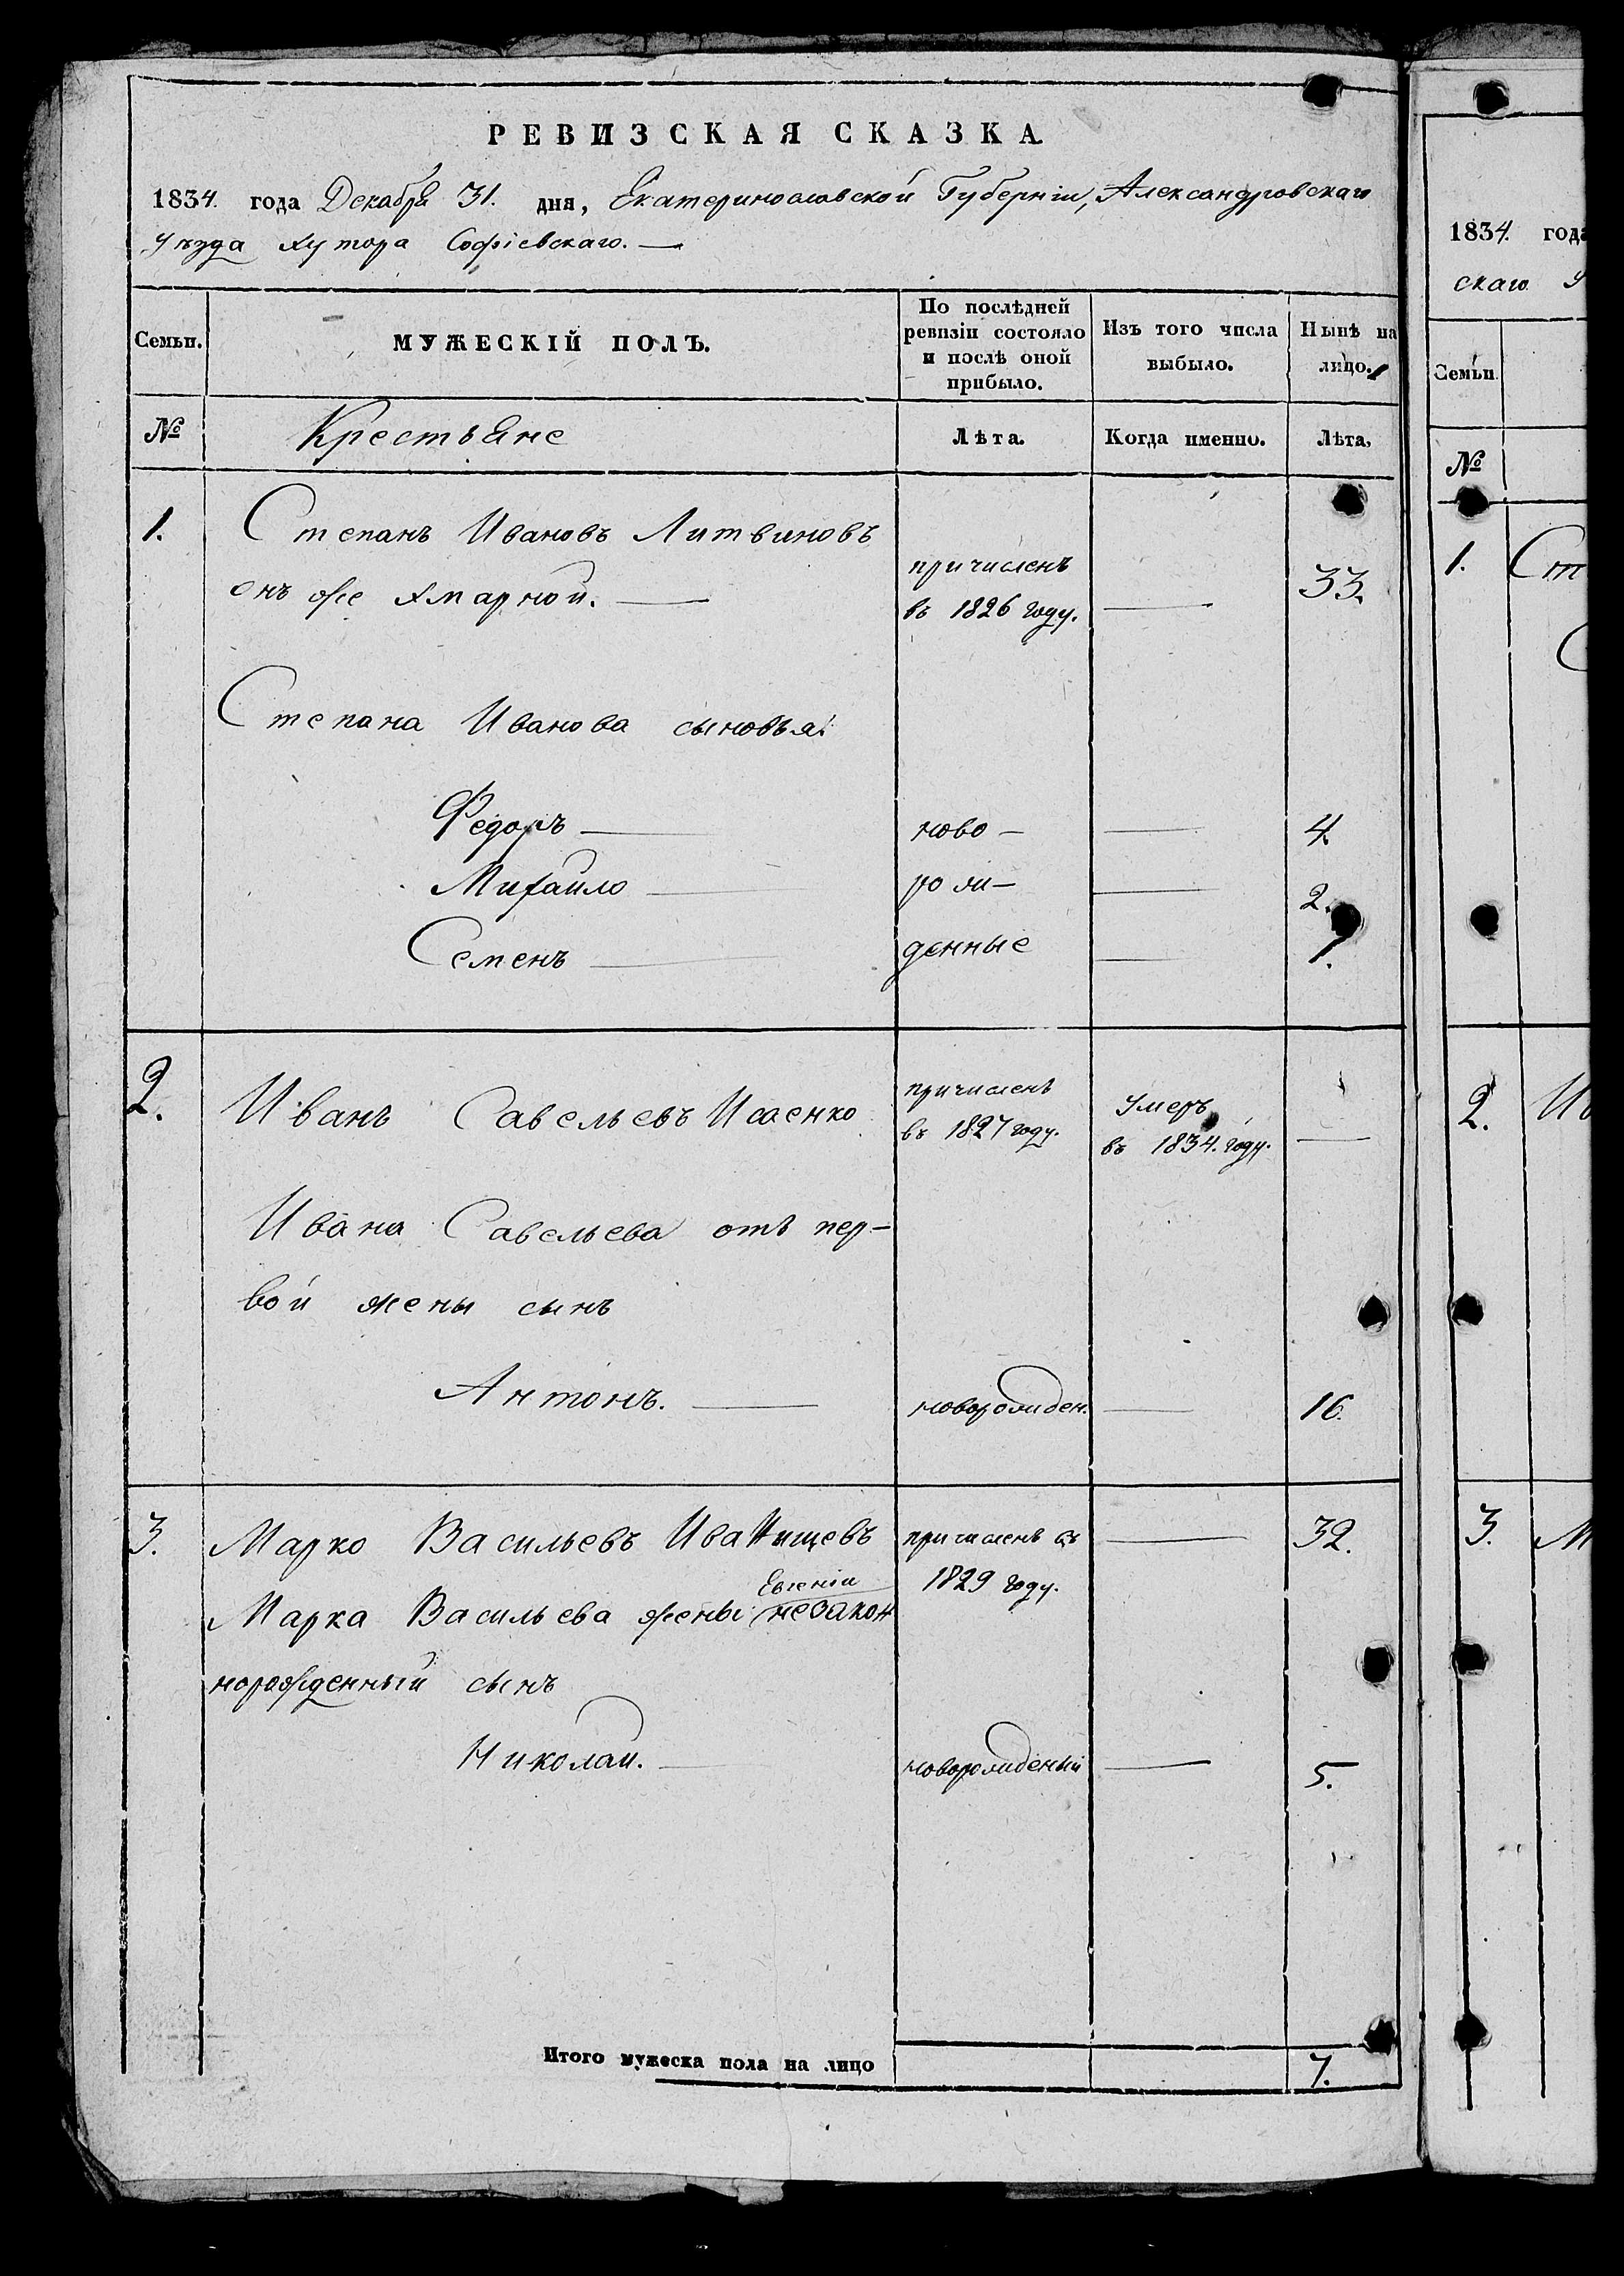 РЕВИЗСКАЯ СКАЗКА
1834 года Декабря 31. дня, Екатеринославской Губерніи, Александровскаго
уѣзда хутора Софіевскаго. —
Семьи.
МУЖЕСКІЙ ПОЛЪ.
По послѣдней
ревизіи состояло
и послѣ оной
прибыло.
Изъ того числа
выбыло.
Нынѣ на
лицо.
№
Крестьяне
Лѣта.
Когда именно.
Лѣта,
1. Степанъ Ивановъ Литвиновъ
онъ же Хмарной. — причисленъ
въ 1826 году. — 33.
Степана Иванова сыновья:
Федоръ — ново — — 4.
Михайло — рож — — 2.
Семенъ — денные — 1.
2. Иванъ Савельевъ Исаенко причисленъ
въ 1827 году. Умеръ
въ 1834. году. —
Ивана Савельева отъ пер-
вой жены сынъ
Антонъ. — новорожден. — 16.
3. Марко Васильевъ Иванищевъ причисленъ въ
1829 году. — 32.
Евгеніи
Марка Васильева жены незакон
норожденный сынъ
Николай. — новорожденый — 5.
Итого мужеска пола на лицо 7.
1834. года
скаго у
Семьи.
№
1. Ст
С
2. Ив
3. М